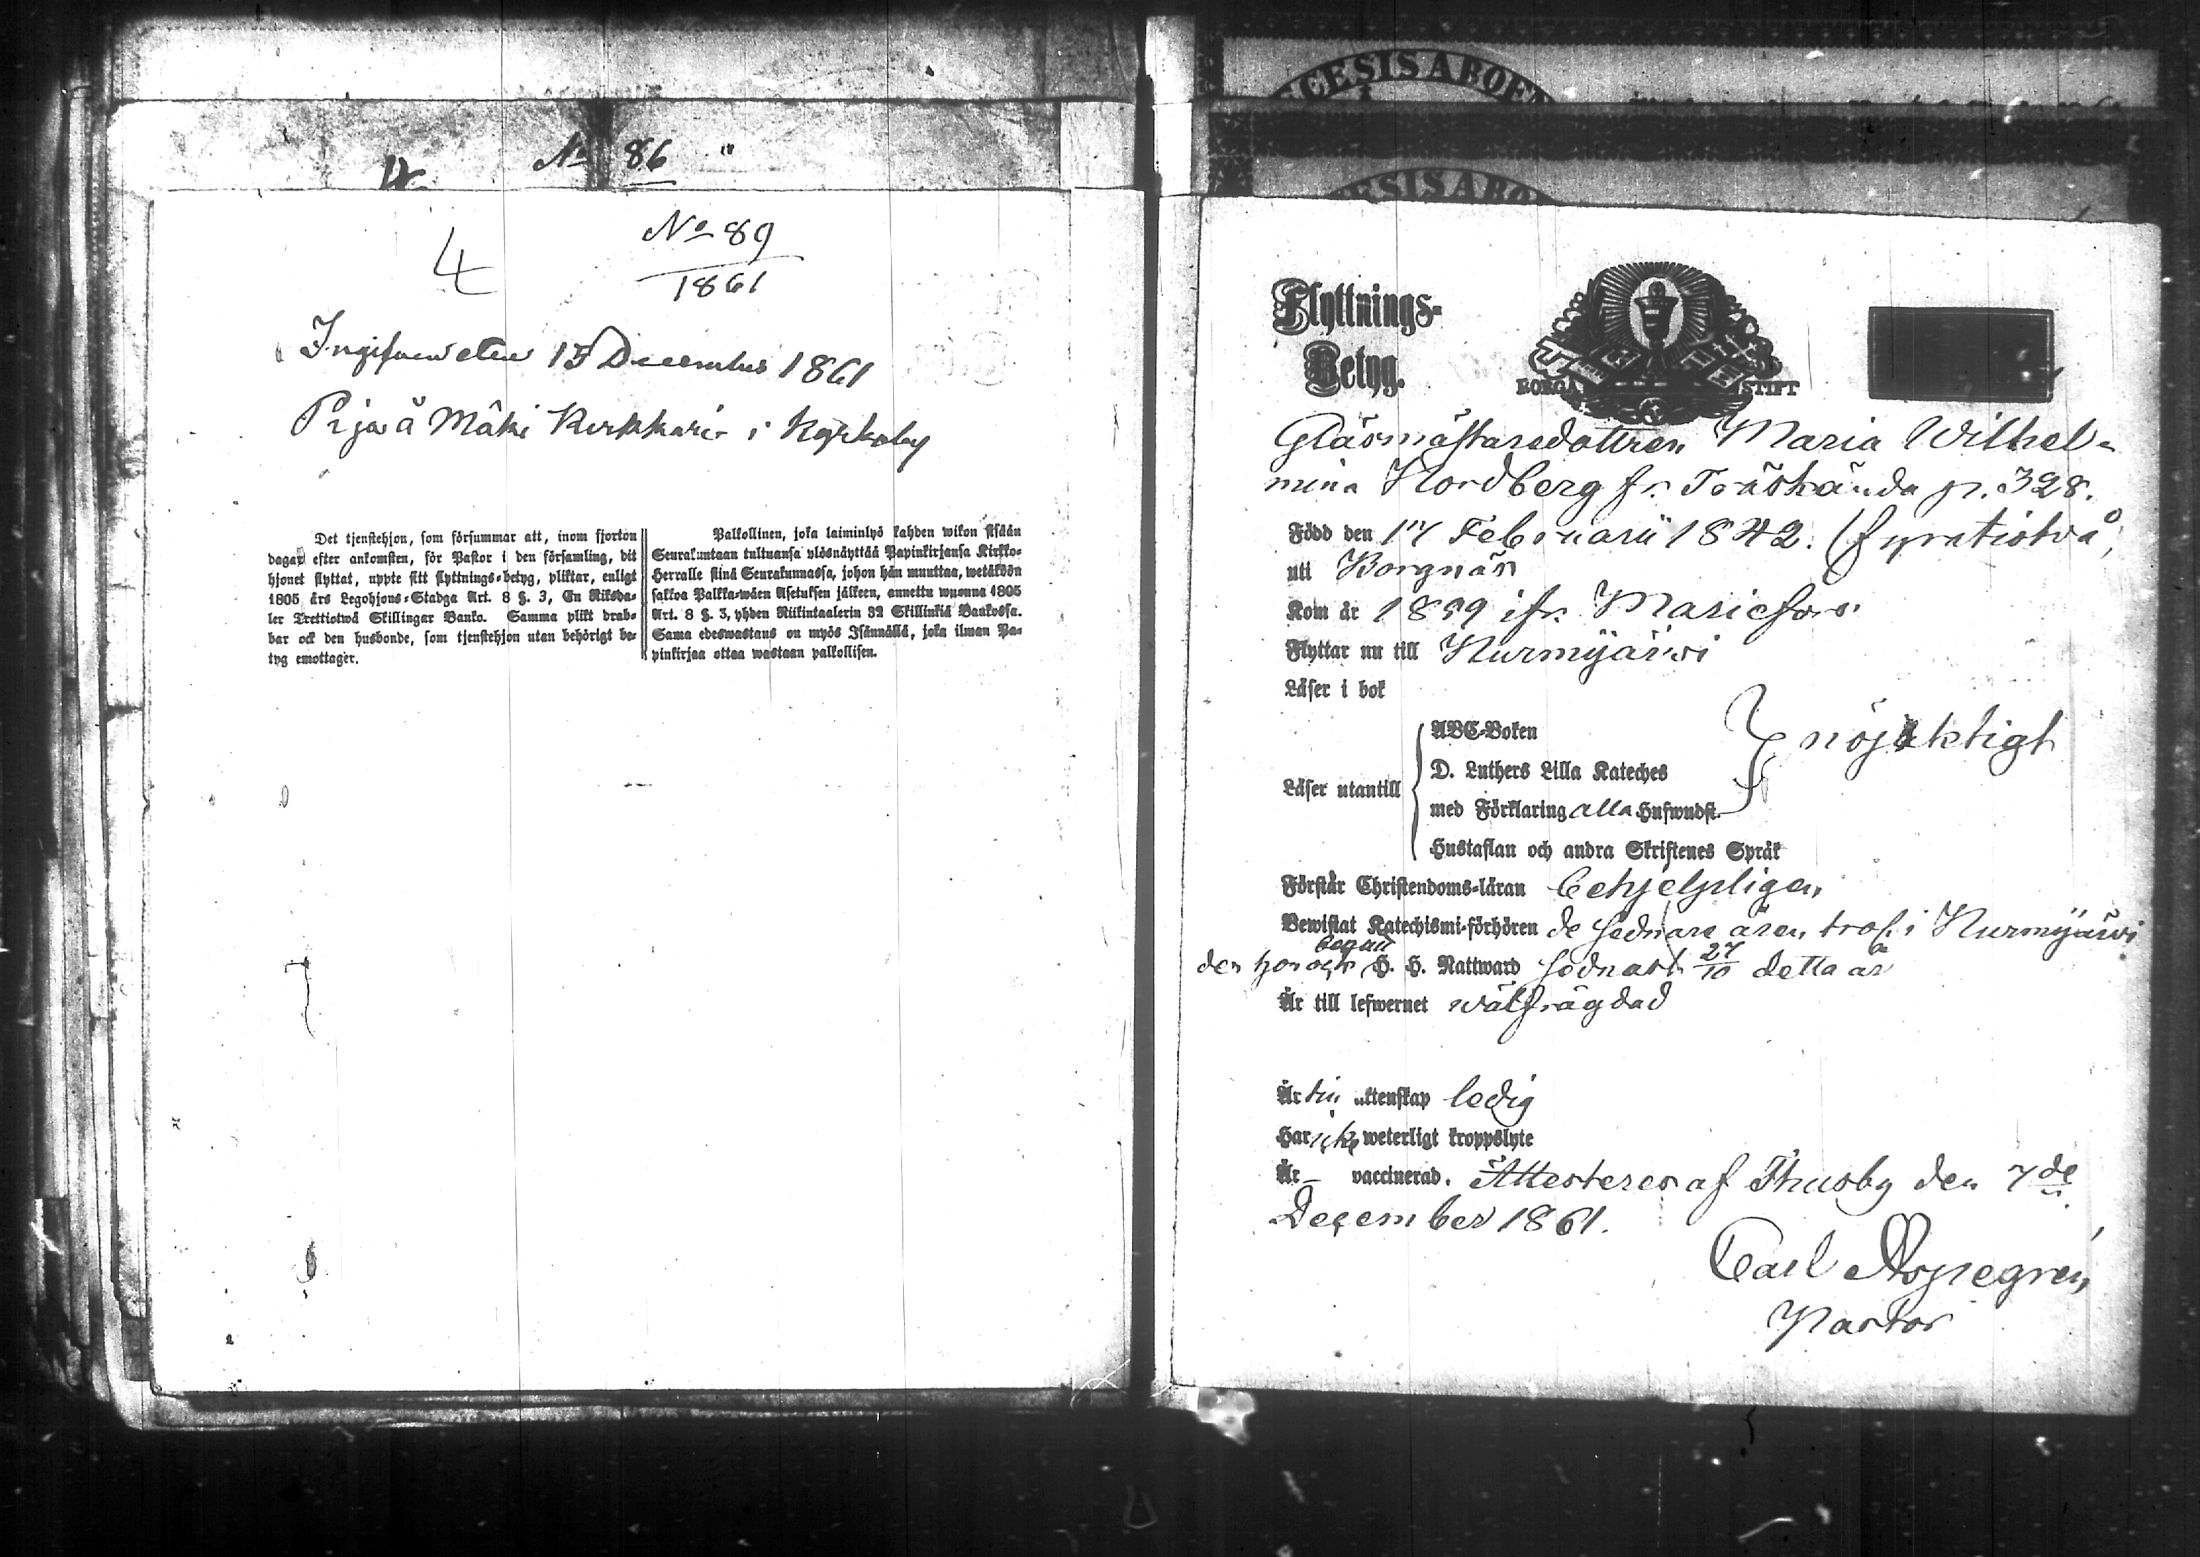 No 86
4
No 89
1861
Ingifven den 15 December 1861
Piga å Mäki Kerkkari i Kyrkoby
Det tjenstehjon, som försummar att, inom fjorton
dagar efter ankomsten, för Pastor i den församling, dit
hjonet flyttat, uppte sitt flyttnings-betyg, pliktar, enligt
1805 års Legohjons-Stadga Art. 8 §. 3, En Riksda-
ler Trettiotwå Skillingar Banko. Samma plikt drab-
bar ock den husbonde, som tjenstehjon utan behörigt be-
tyg emottager.
Palkollinen, joka laiminlyö kahden wikon sisään
Seurakuntaan tultuansa ylösnäyttää Papinkirjansa Kirkko-
Herralle siinä Seurakunnassa, johon hän muuttaa, wetäköön
sakkoa Palkka-wäen Asetuksen jälkeen, annettu wuonna 1805
Art. 8 §. 3, yhden Riikintaalerin 32 Skillinkiä Bankossa.
Sama edeswastaus on myös Isännällä, joka ilman Pa-
pinkirjaa ottaa wastaan palkollisen.
CESIS ABOEN
ESIS ABO
Flyttnings-
Betyg.
BORGÅ STIFT
Glasmästaredottren Maria Wilhel-
mina Nordberg fr. Träskända p. 328.
Född den 17 Februarii 1842. (fyratiotvå)
uti Borgnäs
Kom år 1859 ifr. Mariefors
Flyttar nu till Nurmijärvi
Läser i bok
ABC-Boken
nöjaktigt
D. Luthers Lilla Kateches
Läser utantill
med Förklaring alla Hufwudst.
Hustaflan och andra Skriftenes Språk
Förstår Christendoms-läran behjelpligen,
Bewistat Katechismi-förhören de sednare åren, trol. i Nurmijärvi
begått
der hon och H. H. Nattward sednast 27/10 detta år
Är till lefwernet wälfrägdad
Är till äktenskap ledig
Har icke weterligt kroppslyte
Är – vaccinerad. Attesteras af Thusby den 7de
December 1861.
Carl Alopegren,
Pastor